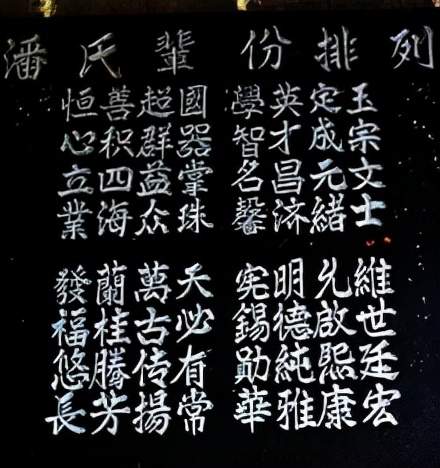 潘氏輩份排列
玉宗文士
定成元緒
英才昌济
學智名馨
國器掌珠
超群益众
善积四海
恒心立業
維世廷宏
允啟熙康
明德純雅
宪錫勋華
天必有常
萬古传揚
蘭桂騰芳
發福悠長